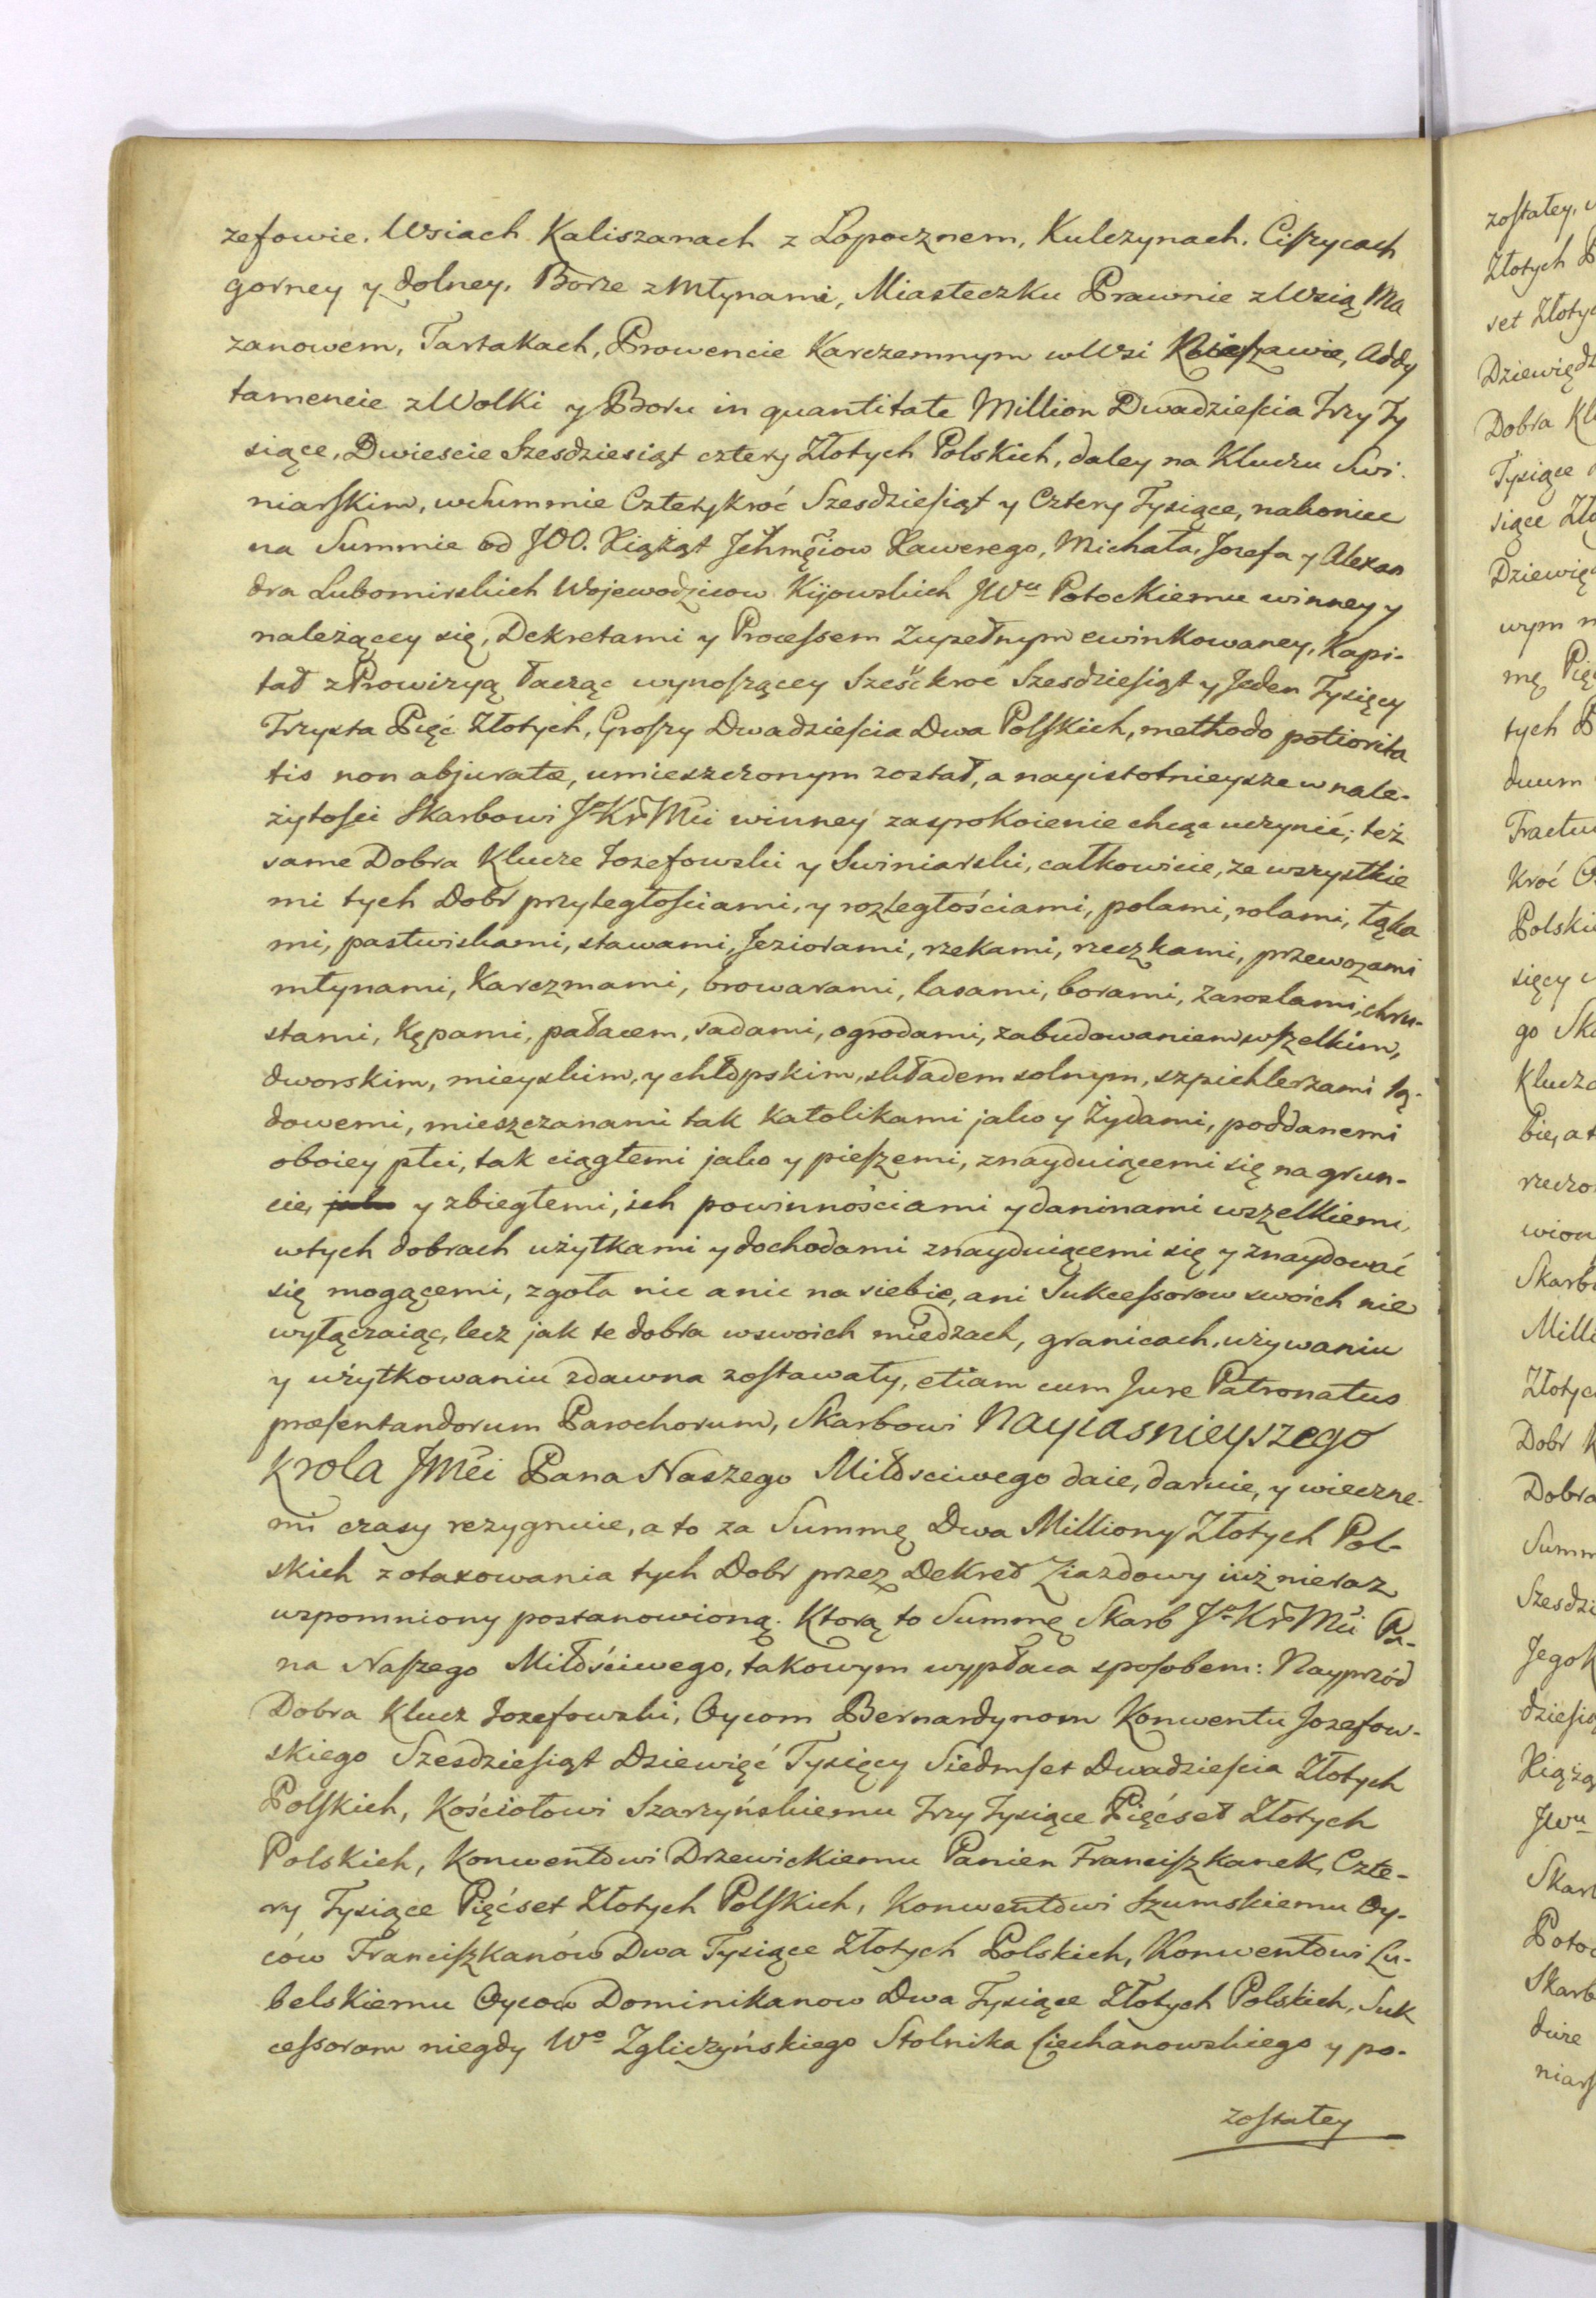 zefowie. Wsiach Kaliszanach z Łopocznem, Kulczynach. Ciszycach
gorney y dolney. Borze z Młynami, Miasteczku Prawnie z Wsią Ma
zanowem, Tartakach, Prowencie Karczemnym w Wsi Addy
tamencie z Wolki y Boru in quantitate Million Dwadzieścia Trzy Ty
siące, Dwiescie Szesdziesiąt cztery Złotych Polskich, daley na Kluczu Swi.
niarskim, w Summie Czterykroć Szesdziesiąt y Cztery Tysiące, nakoniec
na Summie od JOO. Xiążąt Jchmęiow Xawerego, Michała, Jozefa y Alexan
dra Lubomirskich Wojewodzicow Kijowskich JWu Potockiemu winney y
należącey się, Dekretami y Processem Zupełnym ewinkowaney, Kapi-
tał z Prowizyą łacząc wynoszącey Sześćkroć Szesdziesiąt y Jeden Tysięcy
Trzysta Pięć Złotych, Groszy Dwadzieścia Dwa Polskich, methodo potiorita
tis non abjuratæ, umieszczonym został, a nayistotnieysze w nale-
żytości Skarbowi Jo Kr Mci winney zaspokoienie chcąc uczynić; też
same Dobra Klucze Jozefowski y Swiniarski, całkowicie, ze wszystkie
mi tych Dobr przyległościami, y rozległościami, polami, rolami, łąka
mi, pastwiskami, stawami, Jeziorami, rzekami, rzeczkami, przewozami
młynami, Karczmami, browarami, lasami, borami, zaroslami, chru-
stami, Kępami, pałacem, sadami, ogrodami, zabudowaniem wszelkim,
dworskim, mieyskim, y chłopskim, składem solnym, szpichlerzami lą-
dowemi, mieszczanami tak Katolikami jako y Żydami, poddanemi
oboiey płci, tak ciągłemi jako y pieszemi, znayduiącemi się na grun-
cie, jako y zbiegłemi, ich powinnościami y daninami wszelkiemi,
w tych dobrach użytkami y dochodami znayduiącemi się y znaydować
się mogącemi, zgoła nic a nic na siebie, ani Sukcessorow swoich nie
wyłączaiąc, lecz jak te dobra w swoich miedzach, granicach, używaniu
y użytkowaniu zdawna zostawały, etiam cum Jure Patronatus
præsentandorum Parochorum, Skarbowi Nayiasnieyszego
Krola JMci Pana Naszego Miłościwego daie, daruie, y wieczne-
mi czasy rezygnuie, a to za Summę Dwa Milliony Złotych Pol-
skich z otaxowania tych Dobr przez Dekret Ziazdowy iuż nieraz
wspomniony postanowioną. Ktorą to Summę Skarb Jo Kr Mci Pa-
na Naszego Miłościwego, takowym wypłaca sposobem: Nayprzód
Dobra Klucz Jozefowski, Oycom Bernardynom Konwentu Jozefow-
skiego Szesdziesiąt Dziewięć Tysięcy Siedmset Dwadzieścia Złotych
Polskich, Kościołowi Szarzyńskiemu Trzy Tysiące Pięćset Złotych
Polskich, Konwentowi Drzewickiemu Panien Franciszkanek, Czte-
ry Tysiące Pięćset Złotych Polskich, Konwentowi Szumskiemu Oy-
ców Franciszkanów Dwa Tysiące Złotych Polskich, Konwentowi Lu-
belskiemu Oycow Dominikanow Dwa Tysiące Złotych Polskich, Suk
cessorom niegdy Wo Zgliczyńskiego Stolnika Ciechanowskiego y po-
zostałey
zostałey,
Złotych
set Złotyc
Dobra Kl
Tysiące
siące Zło
wym
mę Pięć
tych
duum
Tractu
Kroć
Polski
sięcy
go Ska
Klucza
bie, a t
rzeczo
wion
Skarb
Milli
Złotyc
Dobr
Dobra
Summ
Szesdzi
JegoK
dziesią
Xiążą
JWu
Skarb
Potoc
Skarb
niars